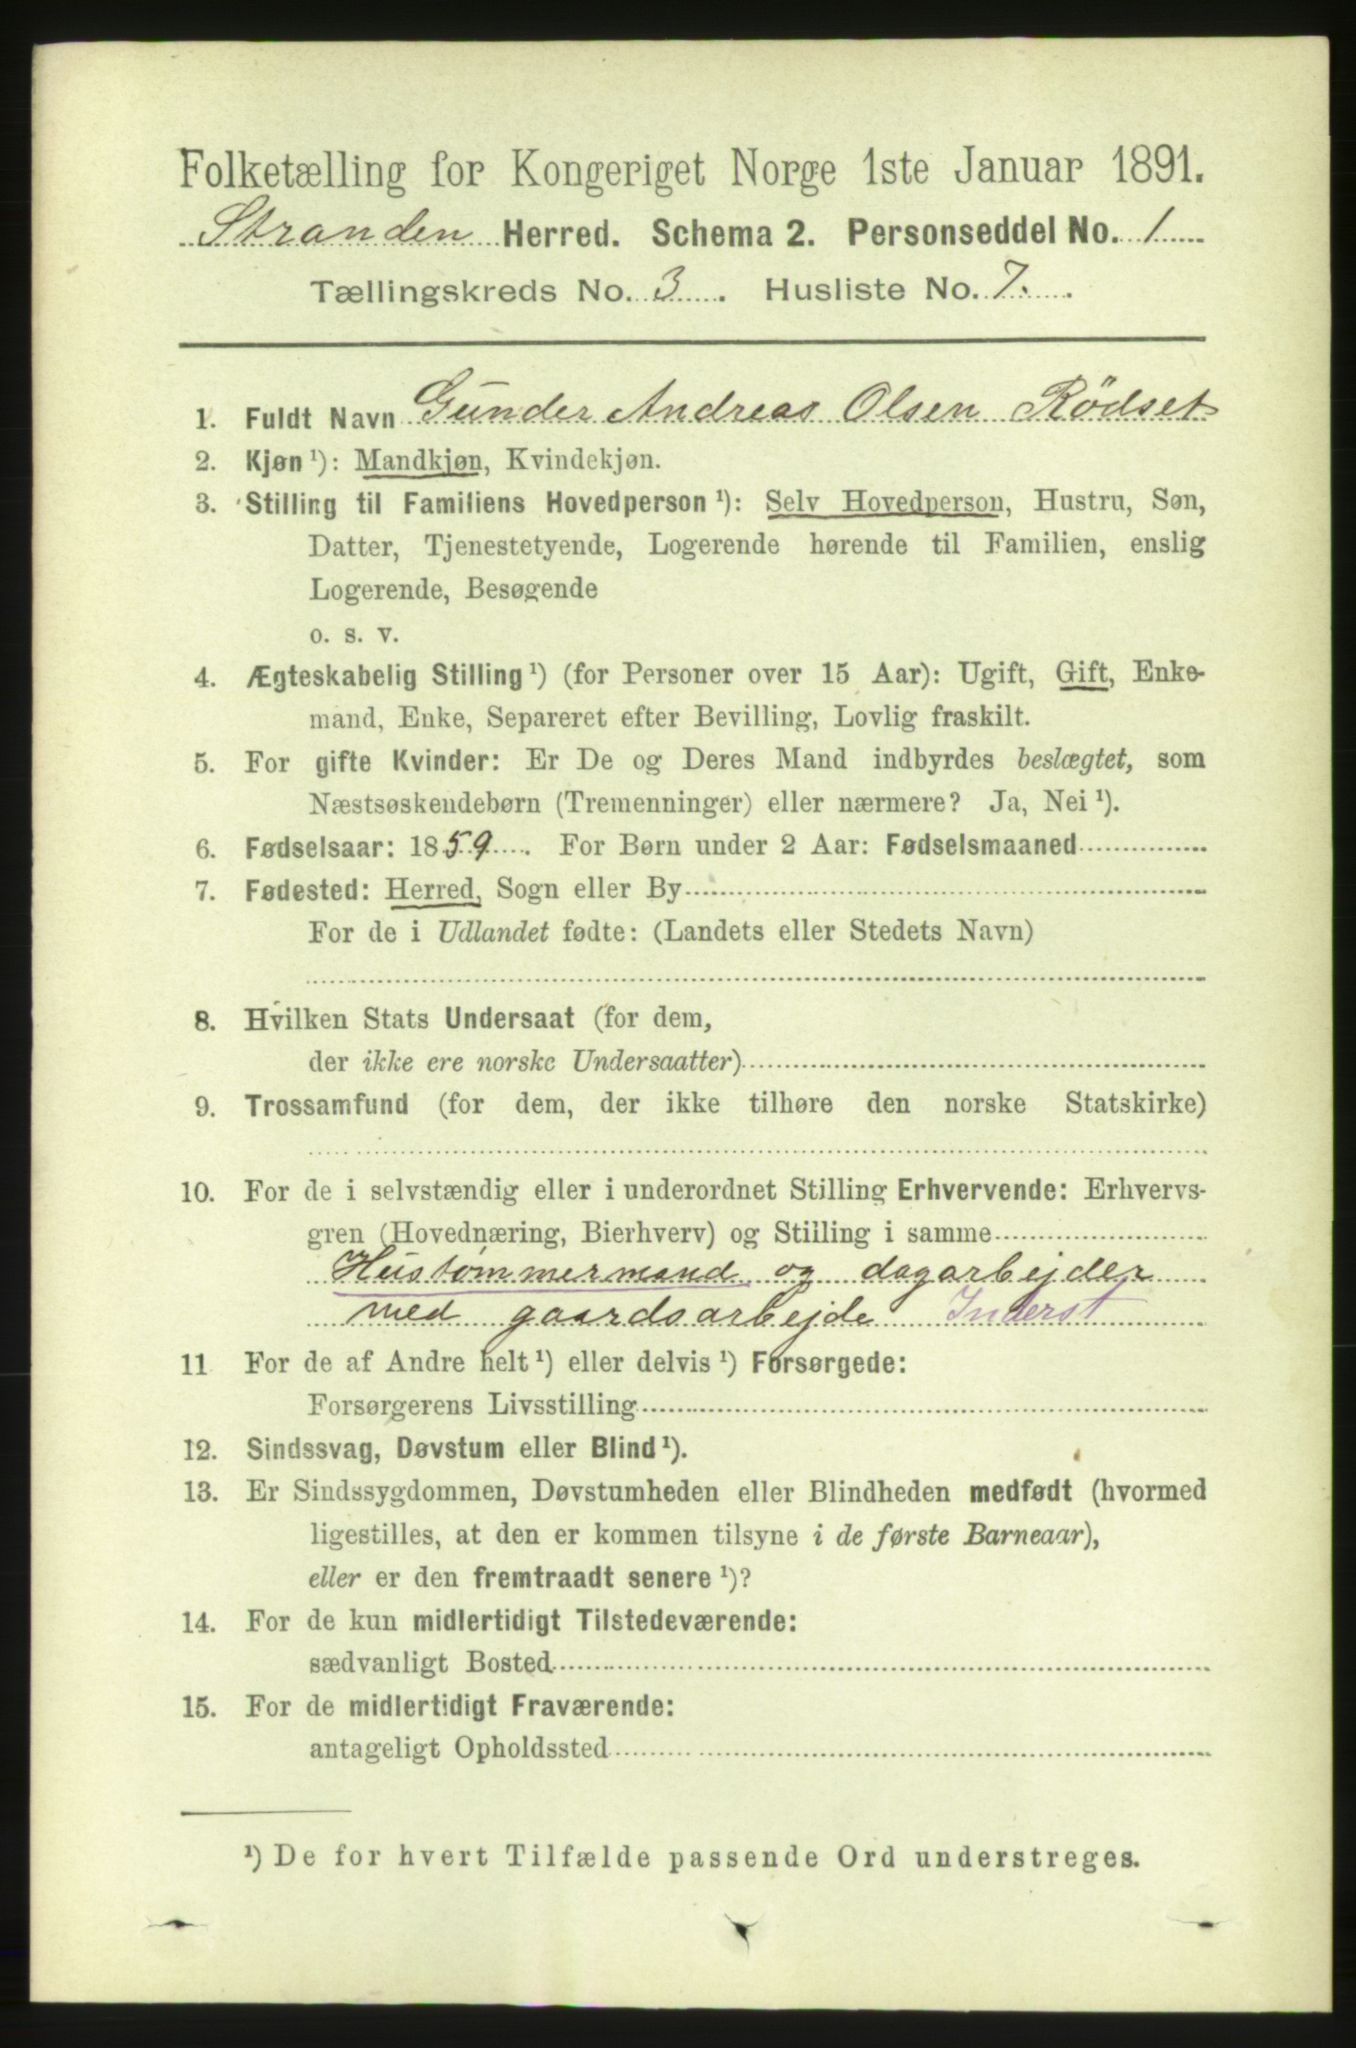 Folketælling for Kongeriget Norge 1ste Januar 1891.
Stranden Herred. Schema 2. Personseddel No. 1
Tællingskreds No. 3. Husliste No. 7.
1. Fuldt Navn Gunder Andreas Olsen Rödset
2. Kjøn ¹): Mandkjøn, Kvindekjøn.
3. Stilling til Familiens Hovedperson ¹): Selv Hovedperson, Hustru, Søn,
Datter, Tjenestetyende, Logerende hørende til Familien, enslig
Logerende, Besøgende
o. s. v.
4. Ægteskabelig Stilling ¹) (for Personer over 15 Aar): Ugift, Gift, Enke-
mand, Enke, Separeret efter Bevilling, Lovlig fraskilt.
5. For gifte Kvinder: Er De og Deres Mand indbyrdes beslægtet, som
Næstsøskendebørn (Tremenninger) eller nærmere? Ja, Nei ¹).
6. Fødselsaar: 1859. For Børn under 2 Aar: Fødselsmaaned
7. Fødested: Herred, Sogn eller By
For de i Udlandet fødte: (Landets eller Stedets Navn)
8. Hvilken Stats Undersaat (for dem,
der ikke ere norske Undersaatter)
9. Trossamfund (for dem, der ikke tilhøre den norske Statskirke)
10. For de i selvstændig eller i underordnet Stilling Erhvervende: Erhvervs-
gren (Hovednæring, Bierhverv) og Stilling i samme
Hustømmermand og dagarbejder
med gaardsarbejde Inderst
11 For de af Andre helt ¹) eller delvis ¹) Forsørgede:
Forsørgerens Livsstilling
12. Sindssvag, Døvstum eller Blind ¹).
13. Er Sindssygdommen, Døvstumheden eller Blindheden medfødt (hvormed
ligestilles, at den er kommen tilsyne i de første Barneaar),
eller er den fremtraadt senere ¹)?
14. For de kun midlertidigt Tilstedeværende:
sædvanligt Bosted
15. For de midlertidigt Fraværende:
antageligt Opholdssted
¹) De for hvert Tilfælde passende Ord understreges.